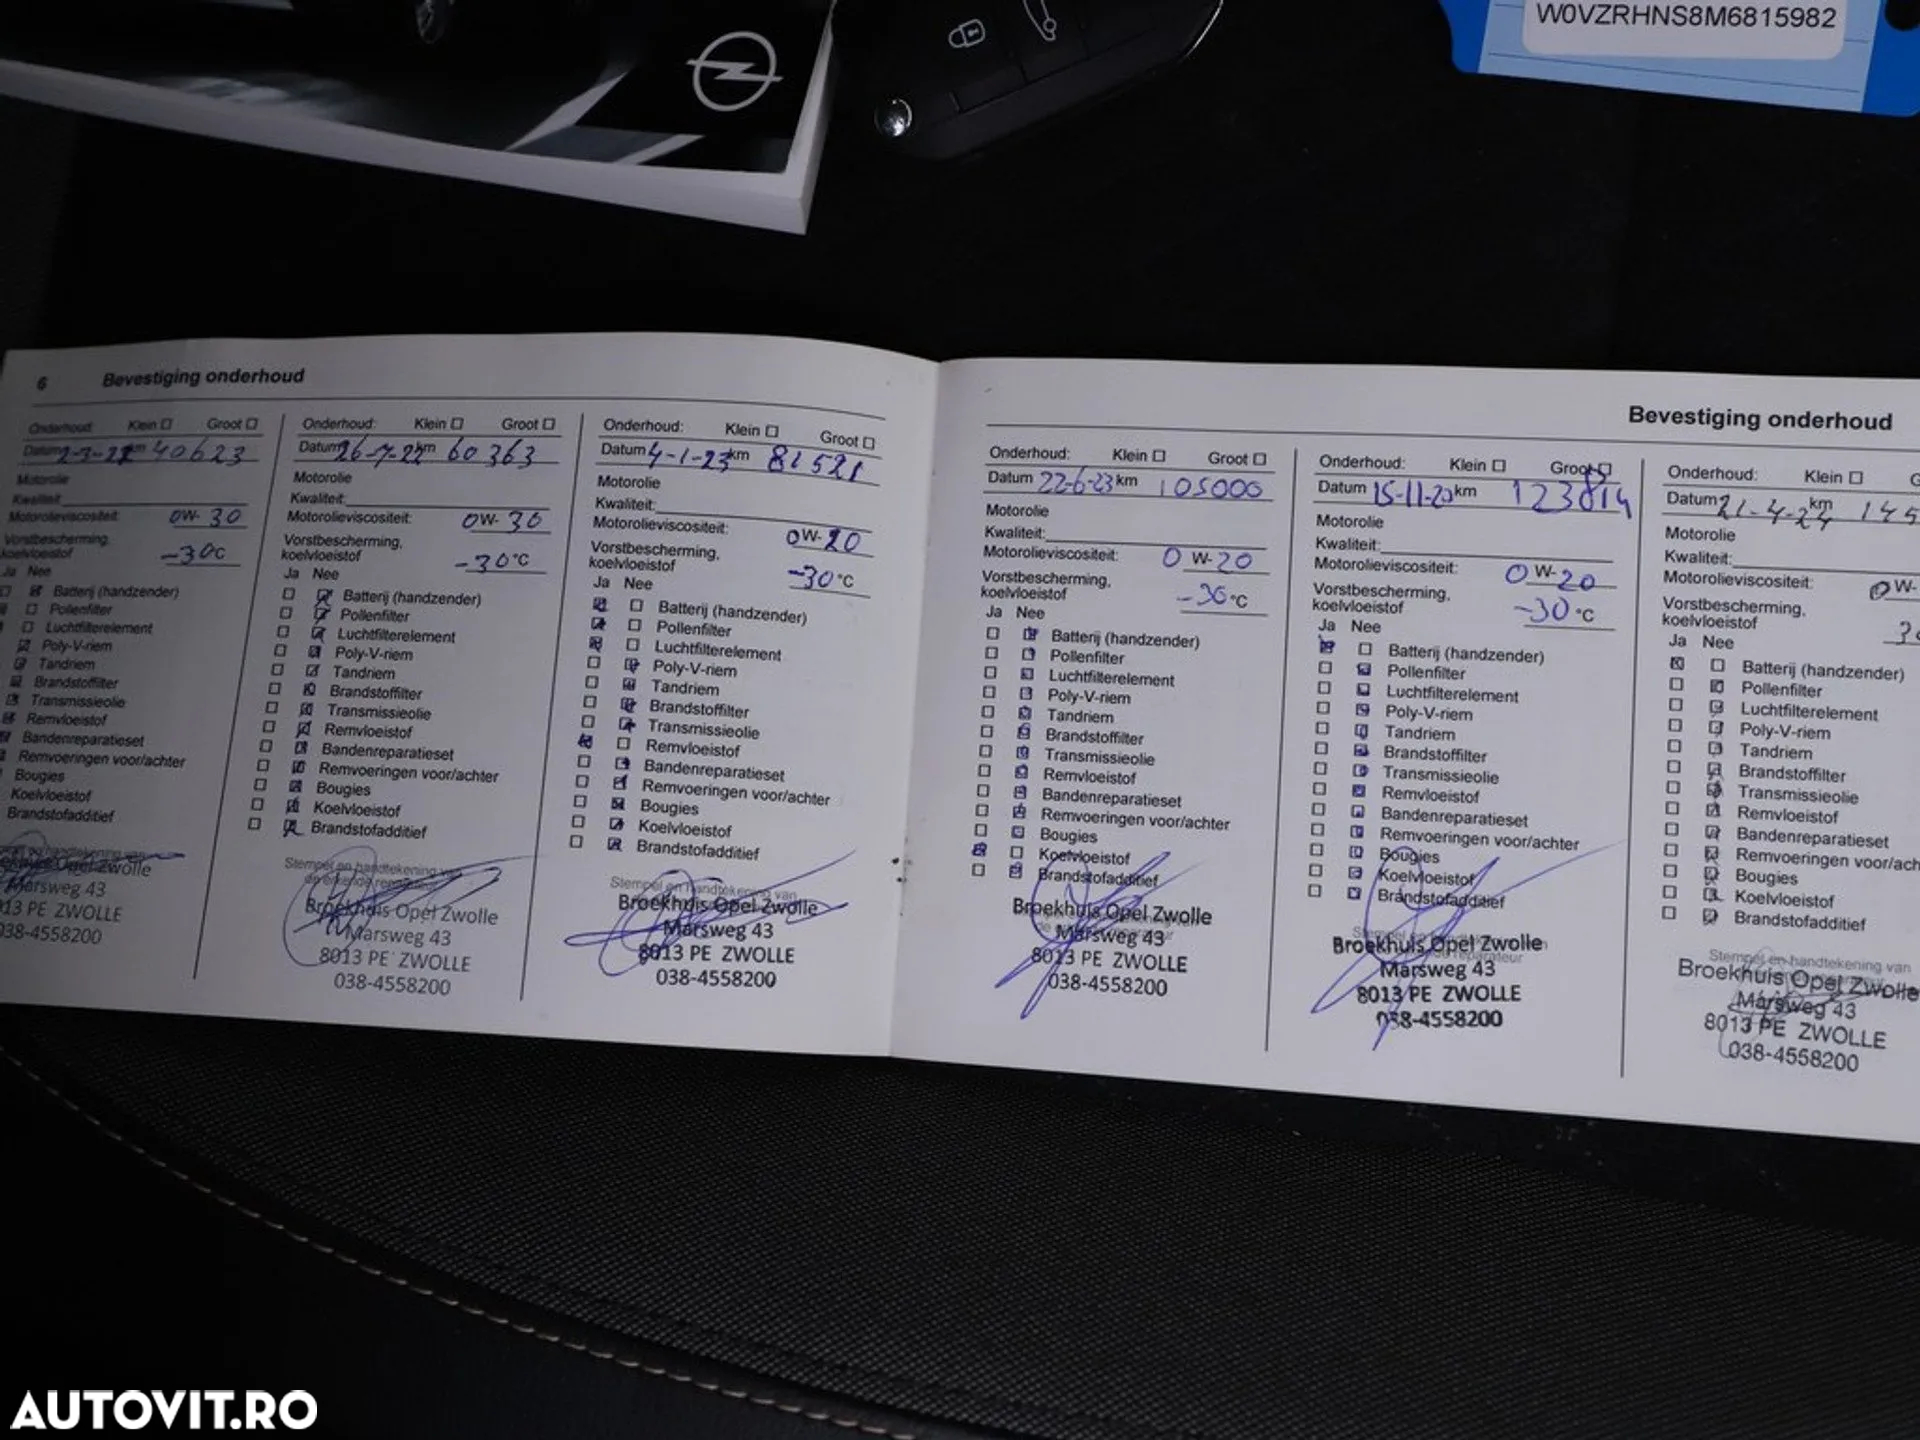 W0VZRHNS8M6815982
6 Bevestiging onderhoud
Onderhoud: Klein Groot
Datum km 40623
Motorolie
Kwaliteit
Motorolieviscositeit: 0W-30
Vorstbescherming,
koelvloeistof -30°C
Ja Nee
Batterij (handzender)
Pollenfilter
Luchtfilterelement
Poly-V-riem
Tandriem
Brandstoffilter
Transmissieolie
Remvloeistof
Bandenreparatieset
Remvoeringen voor/achter
Bougies
Koelvloeistof
Brandstofadditief
Marsweg 43
PE ZWOLLE
038-4558200
Onderhoud: Klein Groot
Datum 26-7-22 km 60363
Motorolie
Kwaliteit:
Motorolieviscositeit: 0W-30
Vorstbescherming,
koelvloeistof -30°C
Ja Nee
Batterij (handzender)
Pollenfilter
Luchtfilterelement
Poly-V-riem
Tandriem
Brandstoffilter
Transmissieolie
Remvloeistof
Bandenreparatieset
Remvoeringen voor/achter
Bougies
Koelvloeistof
Brandstofadditief
Stempel en handtekening van
de erkende reparateur
Broekhuis Opel Zwolle
Marsweg 43
8013 PE ZWOLLE
038-4558200
Onderhoud: Klein Groot
Datum 4-1-23 km 81521
Motorolie
Kwaliteit:
Motorolieviscositeit: 0W-20
Vorstbescherming,
koelvloeistof -30°C
Ja Nee
Batterij (handzender)
Pollenfilter
Luchtfilterelement
Poly-V-riem
Tandriem
Brandstoffilter
Transmissieolie
Remvloeistof
Bandenreparatieset
Remvoeringen voor/achter
Bougies
Koelvloeistof
Brandstofadditief
Stempel en handtekening van
Broekhuis Opel Zwolle
Marsweg 43
8013 PE ZWOLLE
038-4558200
Bevestiging onderhoud
Onderhoud: Klein Groot
Datum 22-6-23 km 105000
Motorolie
Kwaliteit:
Motorolieviscositeit: 0 W-20
Vorstbescherming,
koelvloeistof -30°C
Ja Nee
Batterij (handzender)
Pollenfilter
Luchtfilterelement
Poly-V-riem
Tandriem
Brandstoffilter
Transmissieolie
Remvloeistof
Bandenreparatieset
Remvoeringen voor/achter
Bougies
Koelvloeistof
Brandstofadditief
Broekhuis Opel Zwolle
Marsweg 43
8013 PE ZWOLLE
038-4558200
Onderhoud: Klein Groot
Datum km
Motorolie
Kwaliteit:
Motorolieviscositeit: 0 W-20
Vorstbescherming,
koelvloeistof -30°C
Ja Nee
Batterij (handzender)
Pollenfilter
Luchtfilterelement
Poly-V-riem
Tandriem
Brandstoffilter
Transmissieolie
Remvloeistof
Bandenreparatieset
Remvoeringen voor/achter
Bougies
Koelvloeistof
Brandstofadditief
Broekhuis Opel Zwolle
Marsweg 43
8013 PE ZWOLLE
038-4558200
Onderhoud: Klein
Datum 21-4-24 km
Motorolie
Kwaliteit:
Motorolieviscositeit: 0W-
Vorstbescherming,
koelvloeistof
Ja Nee
Batterij (handzender)
Pollenfilter
Luchtfilterelement
Poly-V-riem
Tandriem
Brandstoffilter
Transmissieolie
Remvloeistof
Bandenreparatieset
Remvoeringen voor/ach
Bougies
Koelvloeistof
Brandstofadditief
Stempel en handtekening van
Broekhuis Opel Zwolle
Marsweg 43
8013 PE ZWOLLE
038-4558200
AUTOVIT.RO